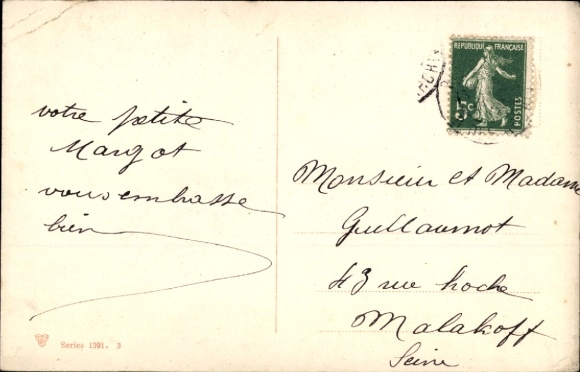 votre petite
Margot
vous embrasse
bien
RÉPUBLIQUE FRANÇAISE
5c
POSTES
Monsieur et Madame
Guillaumot
43 rue hoche
Malakoff
Seine
Series 1391. 3